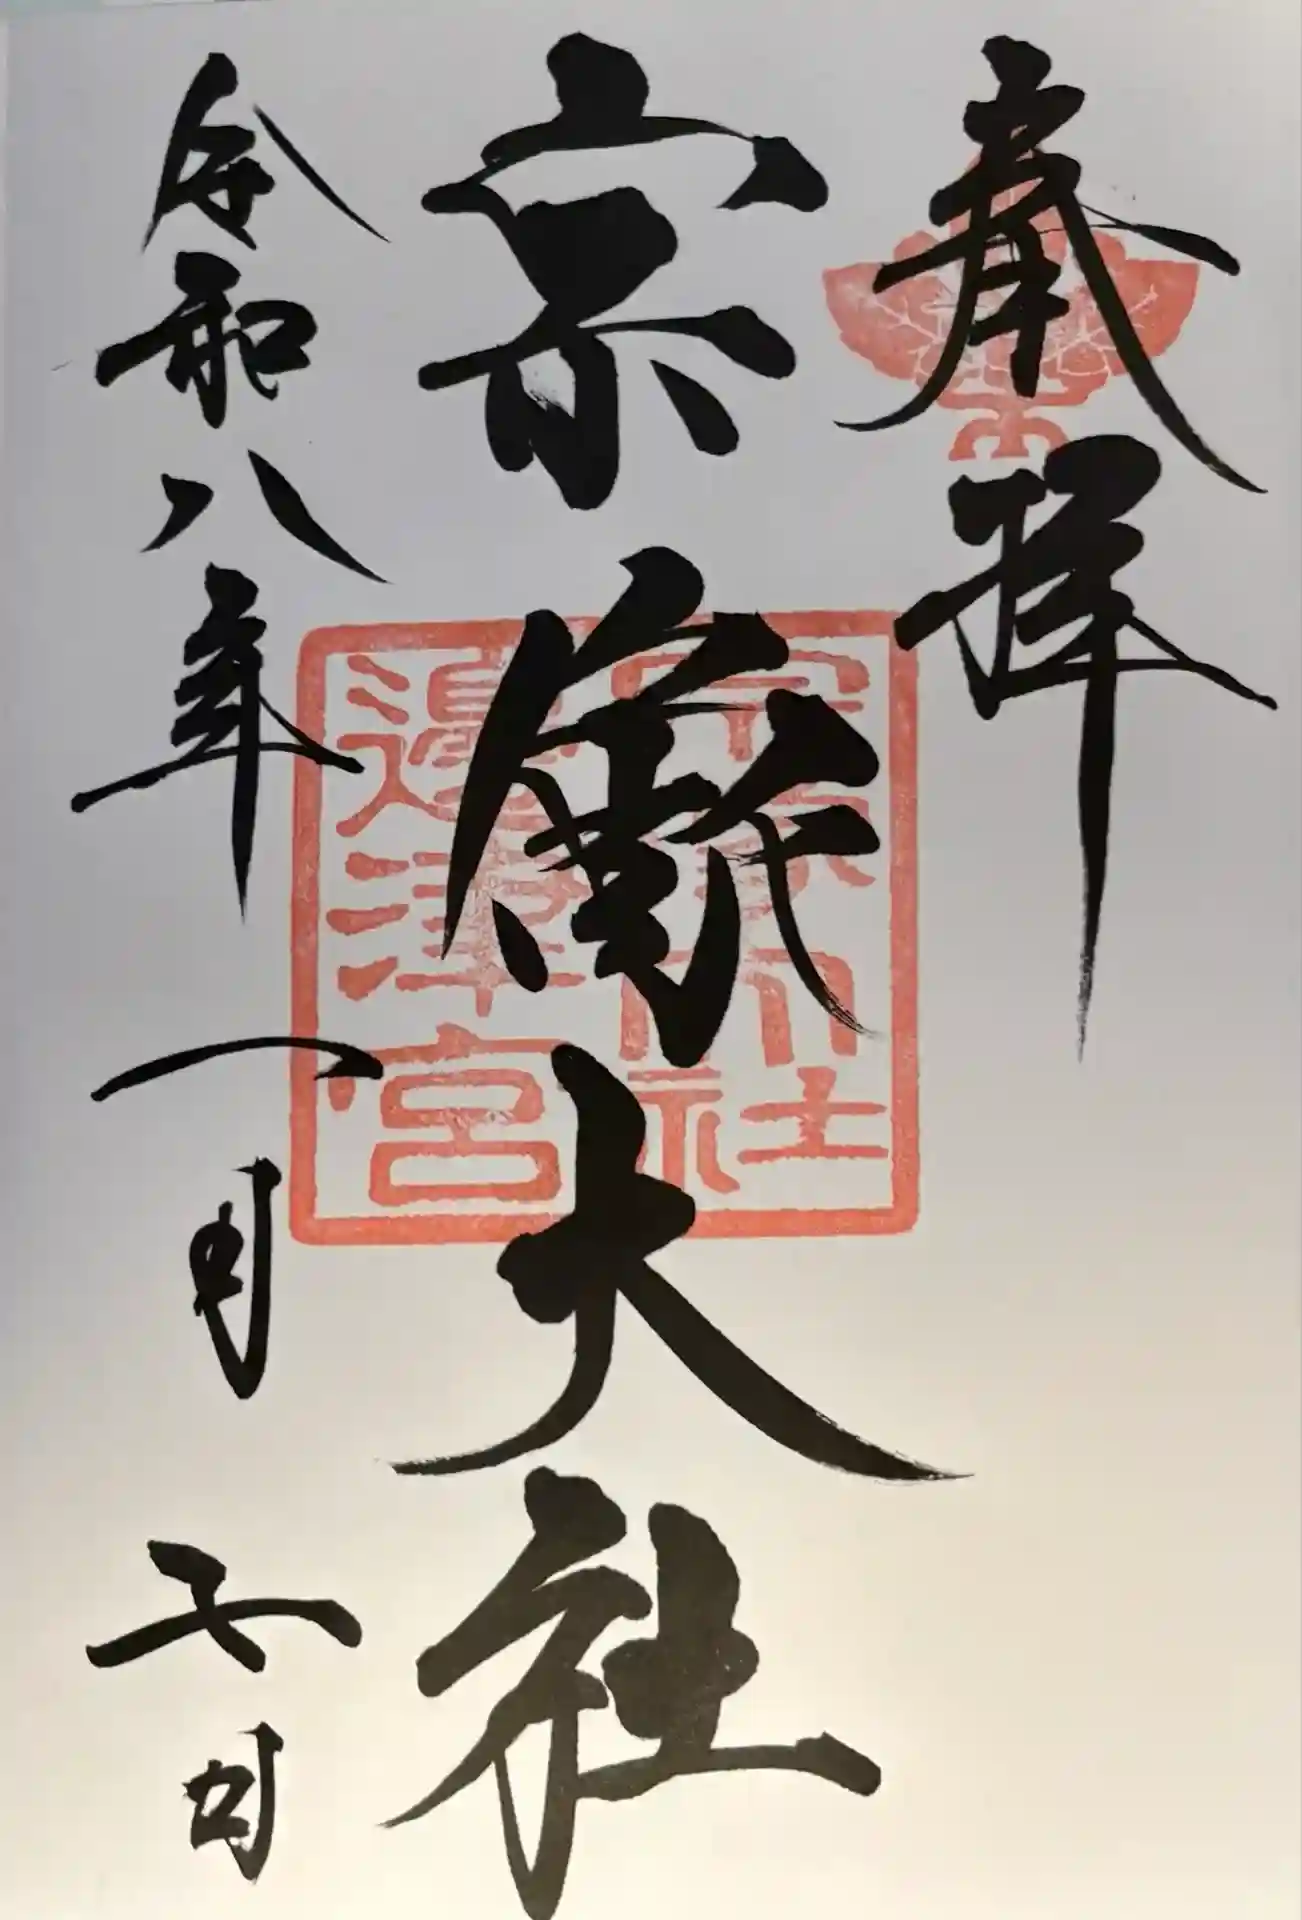 奉拝
宗像大社
令和八年一月日
宗像大社
邊津宮